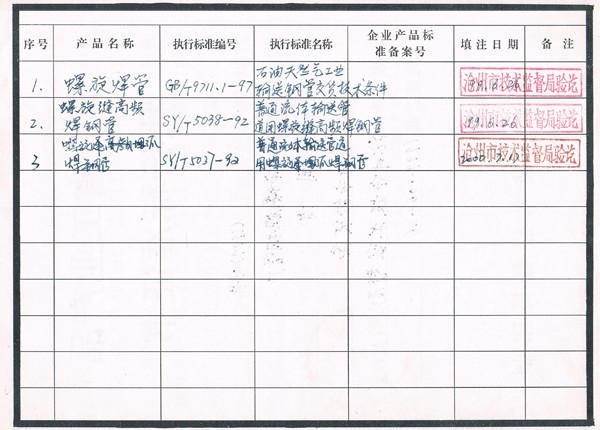 序号 产品名称 执行标准编号 执行标准名称 企业产品标准备案号 填注日期 备注
1. 螺旋焊管 GB/T9711.1-97 石油天然气工业输送钢管交货技术条件 沧州市技术监督局验讫
2. 螺旋缝高频焊钢管 SY/T5038-92 普通流体输送管道用螺旋缝高频焊钢管 沧州市技术监督局验讫
3 焊钢管 SY/T5037-92 普通流体输送管道用螺旋缝埋弧焊钢管 沧州市技术监督局验讫